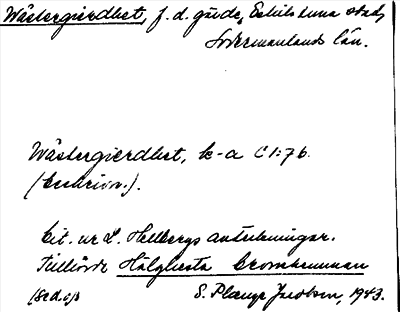 Wästergierdhet, f. d. gärde, Eskilstuna stad,
Södermanlands län.
Wästergierdhet, k-a C 1:76.
(beskrivn.).
Cit. ur L. Hellbergs anteckningar.
Tillhörde Hälghesta
(se d. o.)
S. Plange Jacobson, 1943.